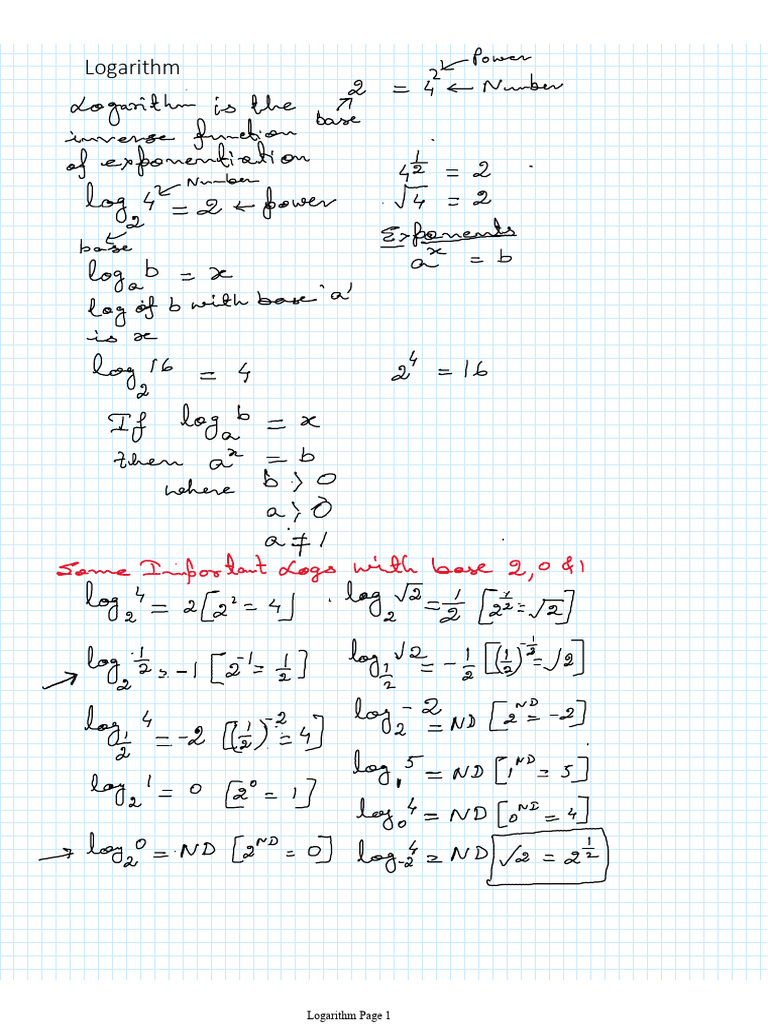 Logarithm
Logarithm is the
inverse function
of exponentiation
2 = 4² ← Power
base
← Number
log₂ 4² = 2 ← power
Number
base
4^(1/2) = 2
√4 = 2
Exponents
aˣ = b
logₐ b = x
log of b with base 'a'
is x
log₂ 16 = 4
2⁴ = 16
If logₐ b = x
then aˣ = b
where b > 0
a > 0
a ≠ 1
Some Important Logs with base 2, 0 & 1
log₂ 4 = 2 [2² = 4]
log₂ √2 = 1/2 [2^(1/2) = √2]
→ log₂ 1/2 = -1 [2⁻¹ = 1/2]
log_(1/2) √2 = -1/2 [(1/2)^(-1/2) = √2]
log_(1/2) 4 = -2 [(1/2)⁻² = 4]
log₂ -2 = ND [2^ND = -2]
log₂ 1 = 0 [2⁰ = 1]
log₁ 5 = ND [1^ND = 5]
log₀ 4 = ND [0^ND = 4]
→ log₂ 0 = ND [2^ND = 0]
log₋₂ 4 = ND
√2 = 2^(1/2)
Logarithm Page 1